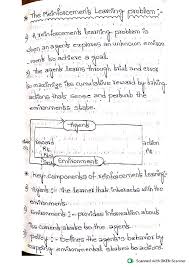 * The Reinforcement Learning problem :-
A reinforcement learning problem is
when an agent explores an unknown
to achieve a goal.
The agent learns through trial and error
to maximize the cumulative reward by taking
actions that sense and perturb the
environment's state.
Agent
reward
action
Environment
* Key components of reinforcement learning
Agent :- The learner that interacts with the
Environment :- provides information about
the current state to the agent.
policy :- Defines the agent's behavior by
mapping environmental states to actions.
CS Scanned with OKEN Scanner